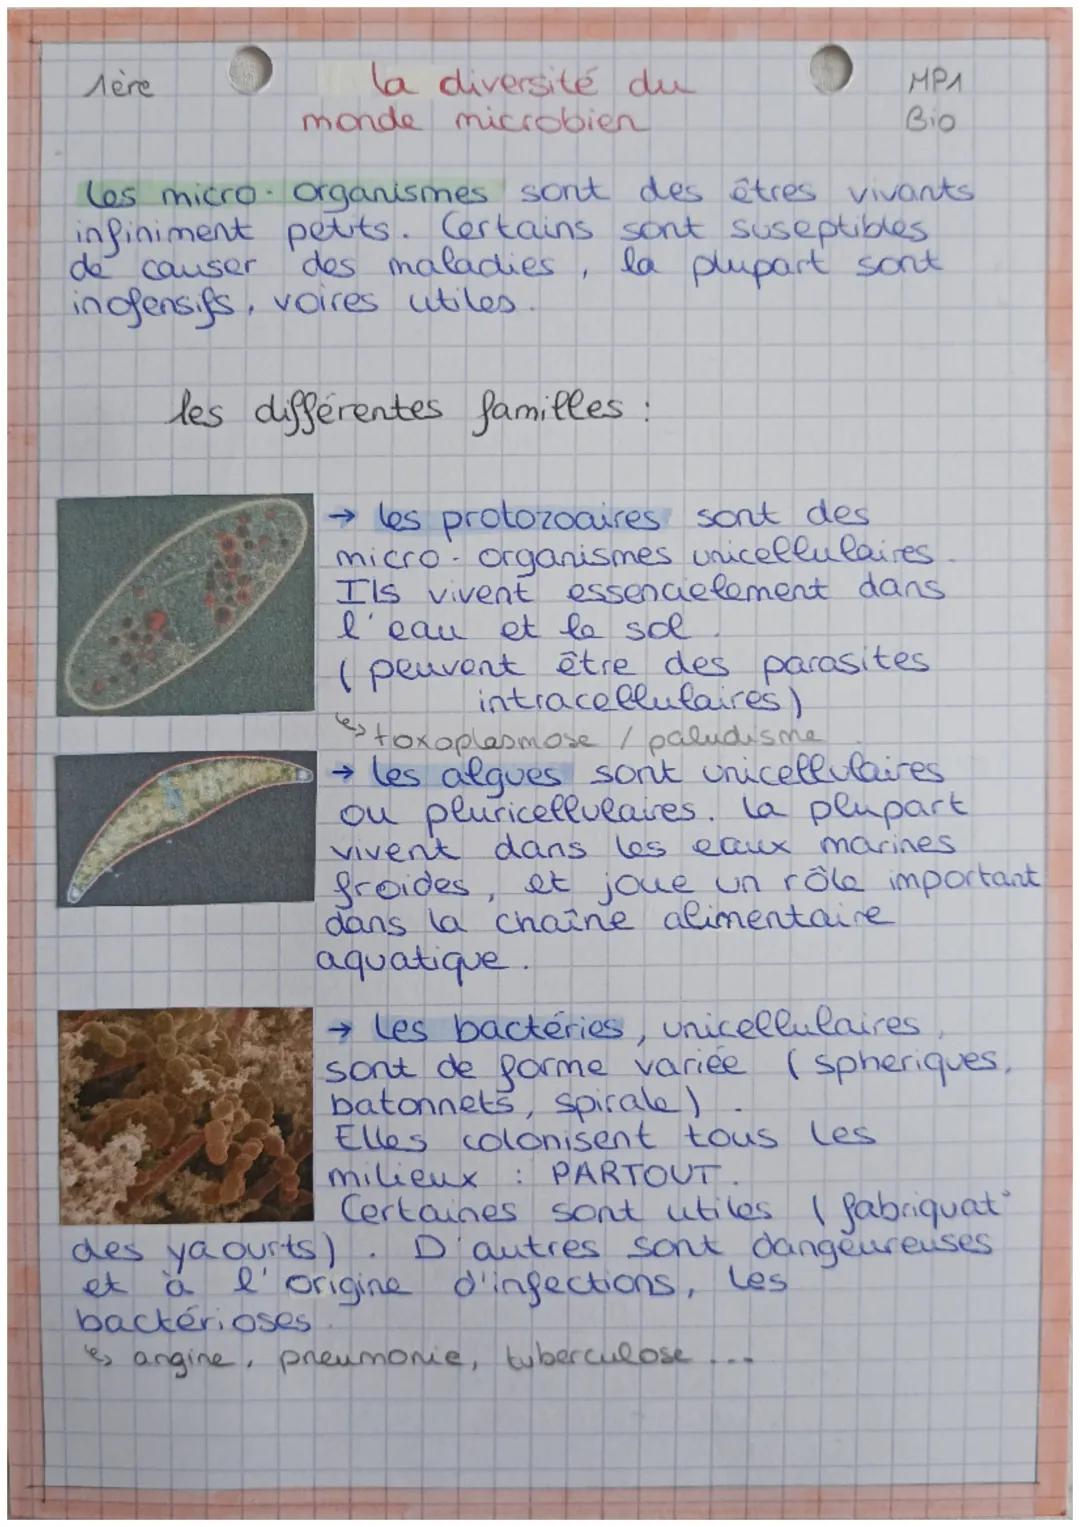 1ère
La diversité du
monde microbien
MP1
Bio
Les micro-organismes sont des êtres vivants
infiniment petits. Certains sont suseptibles
de causer des maladies, la plupart sont
inofensifs, voires utiles.
les différentes familles :
→ Les protozoaires sont des
micro-organismes unicellulaires.
Ils vivent essencielement dans
l'eau et le sol.
(peuvent être des parasites
intracellulaires)
↳ toxoplasmose / paludisme
→ Les algues sont unicellulaires
ou pluricellulaires. La plupart
vivent dans les eaux marines
froides, et joue un rôle important
dans la chaîne alimentaire
aquatique.
→ Les bactéries, unicellulaires,
sont de forme variée (spheriques,
batonnets, spirale).
Elles colonisent tous les
milieux : PARTOUT.
Certaines sont utiles (fabriquat°
des yaourts). D'autres sont dangeureuses
et à l'origine d'infections, les
bactérioses.
↳ angine, pneumonie, tuberculose ...